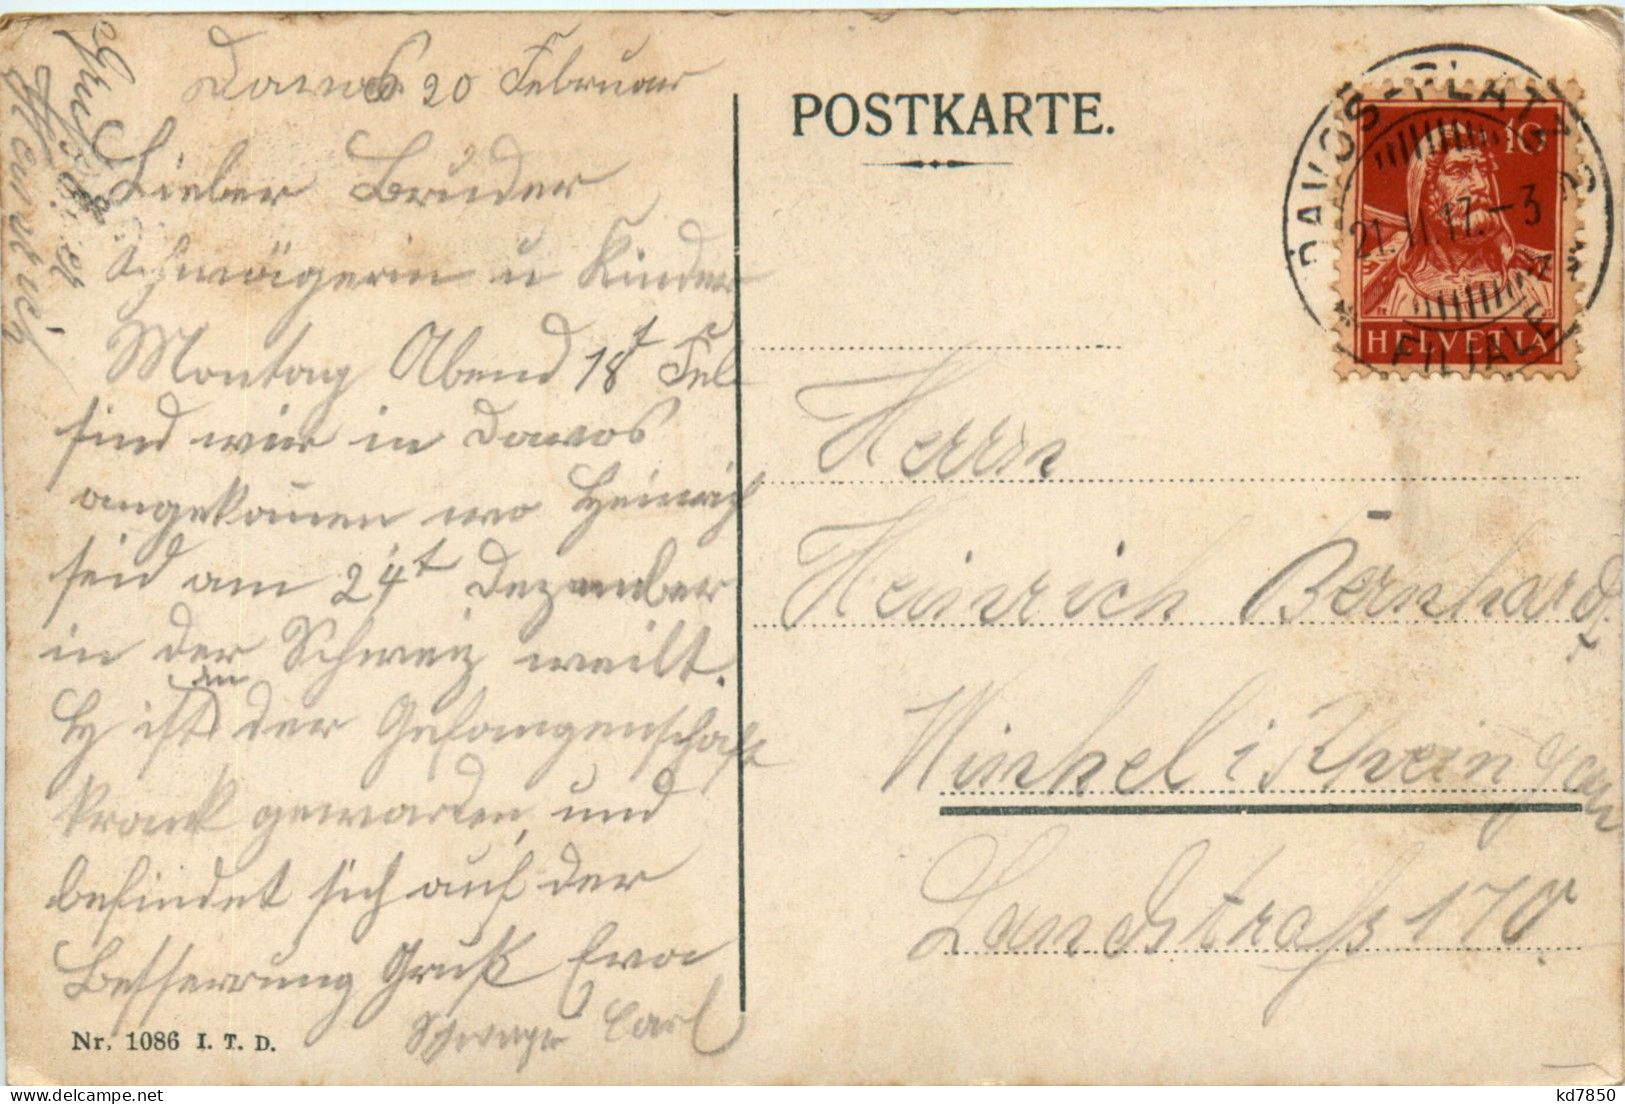 Davos 20 Februar
Lieber Bruder
Schwägerin u Kinder
Montag Abend 18t Feb
sind wir in Davos
angekom̅en wo Heinrich
seid am 24t Dezember
in der Schweiz weilt.
H ist in der Gefangenschaft
krank gewarden und
befindet sich auf der
Besserrung Gruß Eva
Schwager Carl
Heinrich
Nr. 1086 I. T. D.
POSTKARTE.
DAVOS-PLATZ 2
21.II.17.-3
FILIALE
10
HELVETIA
Herrn
Heinrich Bernhard
Winkel i Rheingau
Landstraße 170
kd7850